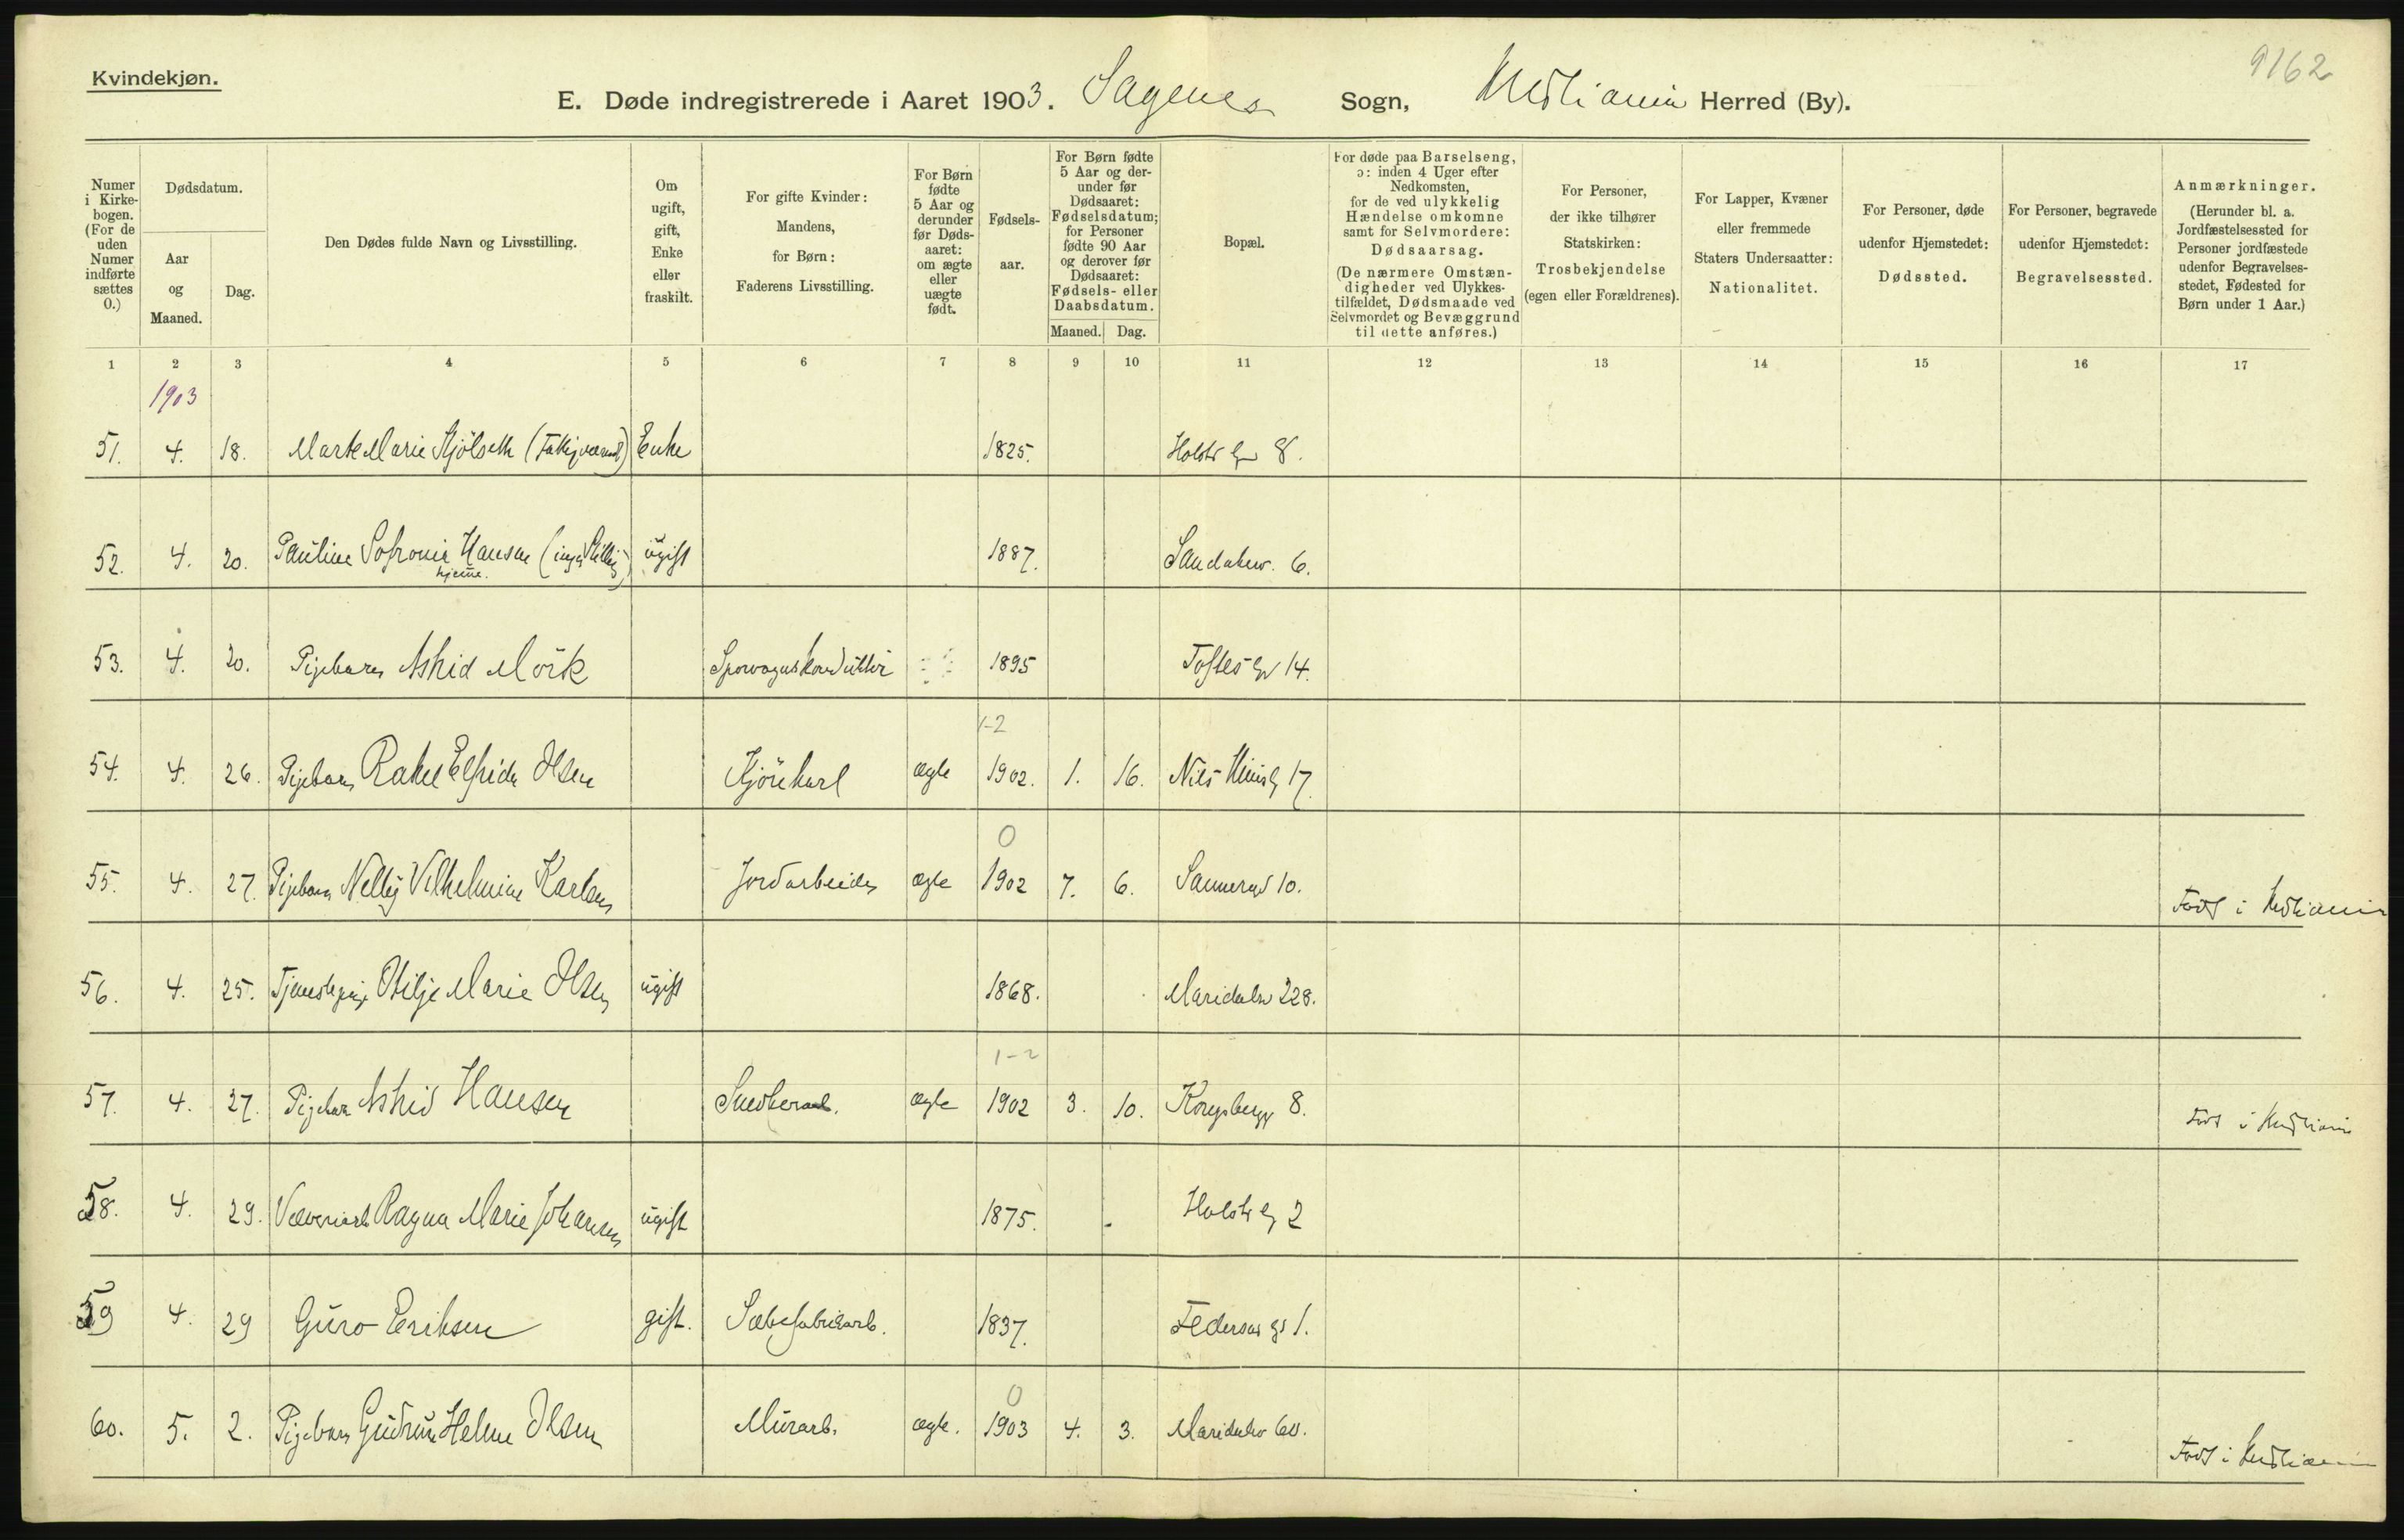 9162
Kvindekjøn.
E. Døde indregistrerede i Aaret 1903. Sagenes Sogn, Kristiania Herred (By).
Numer i Kirkebogen. (For de uden Numer indførte sættes 0.)
Dødsdatum.
Aar og Maaned.
Dag.
Den Dødes fulde Navn og Livsstilling.
Om ugift, gift, Enke eller fraskilt.
For gifte Kvinder: Mandens, for Børn: Faderens Livsstilling.
For Børn fødte 5 Aar og derunder før Dødsaaret: om ægte eller uægte født.
Fødselsaar.
For Børn fødte 5 Aar og derunder før Dødsaaret: Fødselsdatum; for Personer fødte 90 Aar og derover før Dødsaaret: Fødsels- eller Daabsdatum.
Maaned. Dag.
Bopæl.
For døde paa Barselseng, ɔ: inden 4 Uger efter Nedkomsten, for de ved ulykkelig Hændelse omkomne samt for Selvmordere: Dødsaarsag. (De nærmere Omstændigheder ved Ulykkestilfældet, Dødsmaade ved Selvmordet og Bevæggrund til dette anføres.)
For Personer, der ikke tilhører Statskirken: Trosbekjendelse (egen eller Forældrenes).
For Lapper, Kvæner eller fremmede Staters Undersaatter: Nationalitet.
For Personer, døde udenfor Hjemstedet: Dødssted.
For Personer, begravede udenfor Hjemstedet: Begravelsessted.
Anmærkninger. (Herunder bl. a. Jordfæstelsessted for Personer jordfæstede udenfor Begravelsesstedet, Fødested for Børn under 1 Aar.)
1 2 3 4 5 6 7 8 9 10 11 12 13 14 15 16 17
1903
51. 4. 18. Marte Marie Kjölseth Enke 1825. Holsts g 8.
52. 4. 20. Pauline Sofronie Hansen (ingen Stilling) ugift 1887. Sandakerv. 6.
hjemme.
53. 4. 20. Pigebarn Astrid Mörk Sporvognskonduktör 1895 Toftes g 14.
1-2
54. 4. 26. Pigebarn Rakel Elfrida Olsen Kjörekarl ægte 1902. 1. 16. Nils Huusg 17.
0
55. 4. 27. Pigebarn Nelly Vilhelmine Karlsen Jordarbeider ægte 1902 7. 6. Sannergd 10. Född i Kristiania
56. 4. 25. Tjenestepige Otilje Marie Olsen ugift 1868. Maridalsv 228.
1-2
57. 4. 27. Pigebarn Astrid Hansen Snedkerarb. ægte 1902 3. 10. Kongsbergg 8. Född i Kristiania
58. 4. 29. Væveriarb Ragna Marie Johansen ugift 1875. Holsts g 2
59 4. 29 Guro Eriksen gift. Sæbefabrikarb. 1837. Federsens gt 1.
0
60. 5. 2. Pigebarn Gudrun Helene Olsen Murarb. ægte. 1903 4. 3. Maridalsv 60. Född i Kristiania